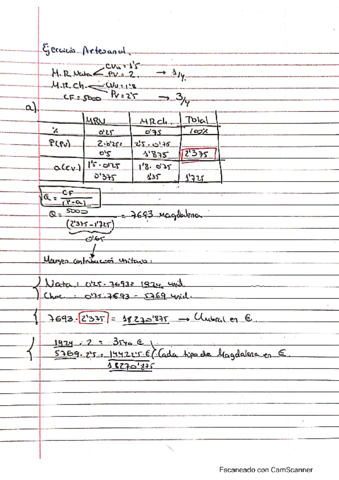 Ejercicio Artesanal.
M.R. Nata CVu = 1'5
PV = 2. → 1/4.
M.R. Ch. CVu = 1'8
PV = 2'5 → 3/4
CF = 5000
a)
MRN MRCh. Total
% 0'25 0'75 100%
P(PV) 2·0'25= 2'5·0'75=
0'5 1'875 2'375
a(cv.) 1'5·0'25 1'8·0'75
0'375 1'35 1'725
Q = CF / (P-a)
Q = 5000 / (2'375-1'725) = 7693 Magdalenas
0'65
Margen contribución unitario.
Nata: 0'25·7693= 1924 und
Choc: 0'75·7693= 5769 und.
7693·2'375 = 18270'875 → Umbral en €.
1924·2 = 3840 €
5769·2'5= 14422'5 € (Cada tipo de Magdalena en €.
18270'875
Escaneado con CamScanner